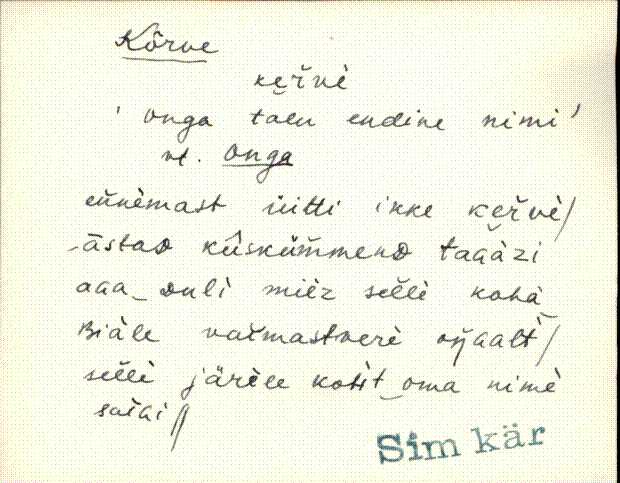 Kõrve
ker̆vè
' onga talu endine nimi '
vt. Onga
en̆nèmast üitti ikke ker̆vè/
ästaD küskümmenD tagàzi
aga‿ᴅuli mièz sel̆lè kohà
Biàle vaimastverè oŋgalt/
sel̆lè järèle koht‿oma nimè
sai/
Sim kär